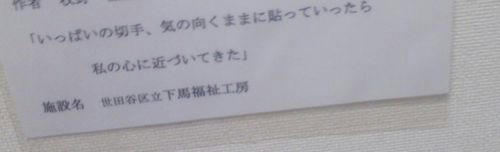 作者
「いっぱいの切手、気の向くままに貼っていったら
私の心に近づいてきた」
施設名 世田谷区立下馬福祉工房